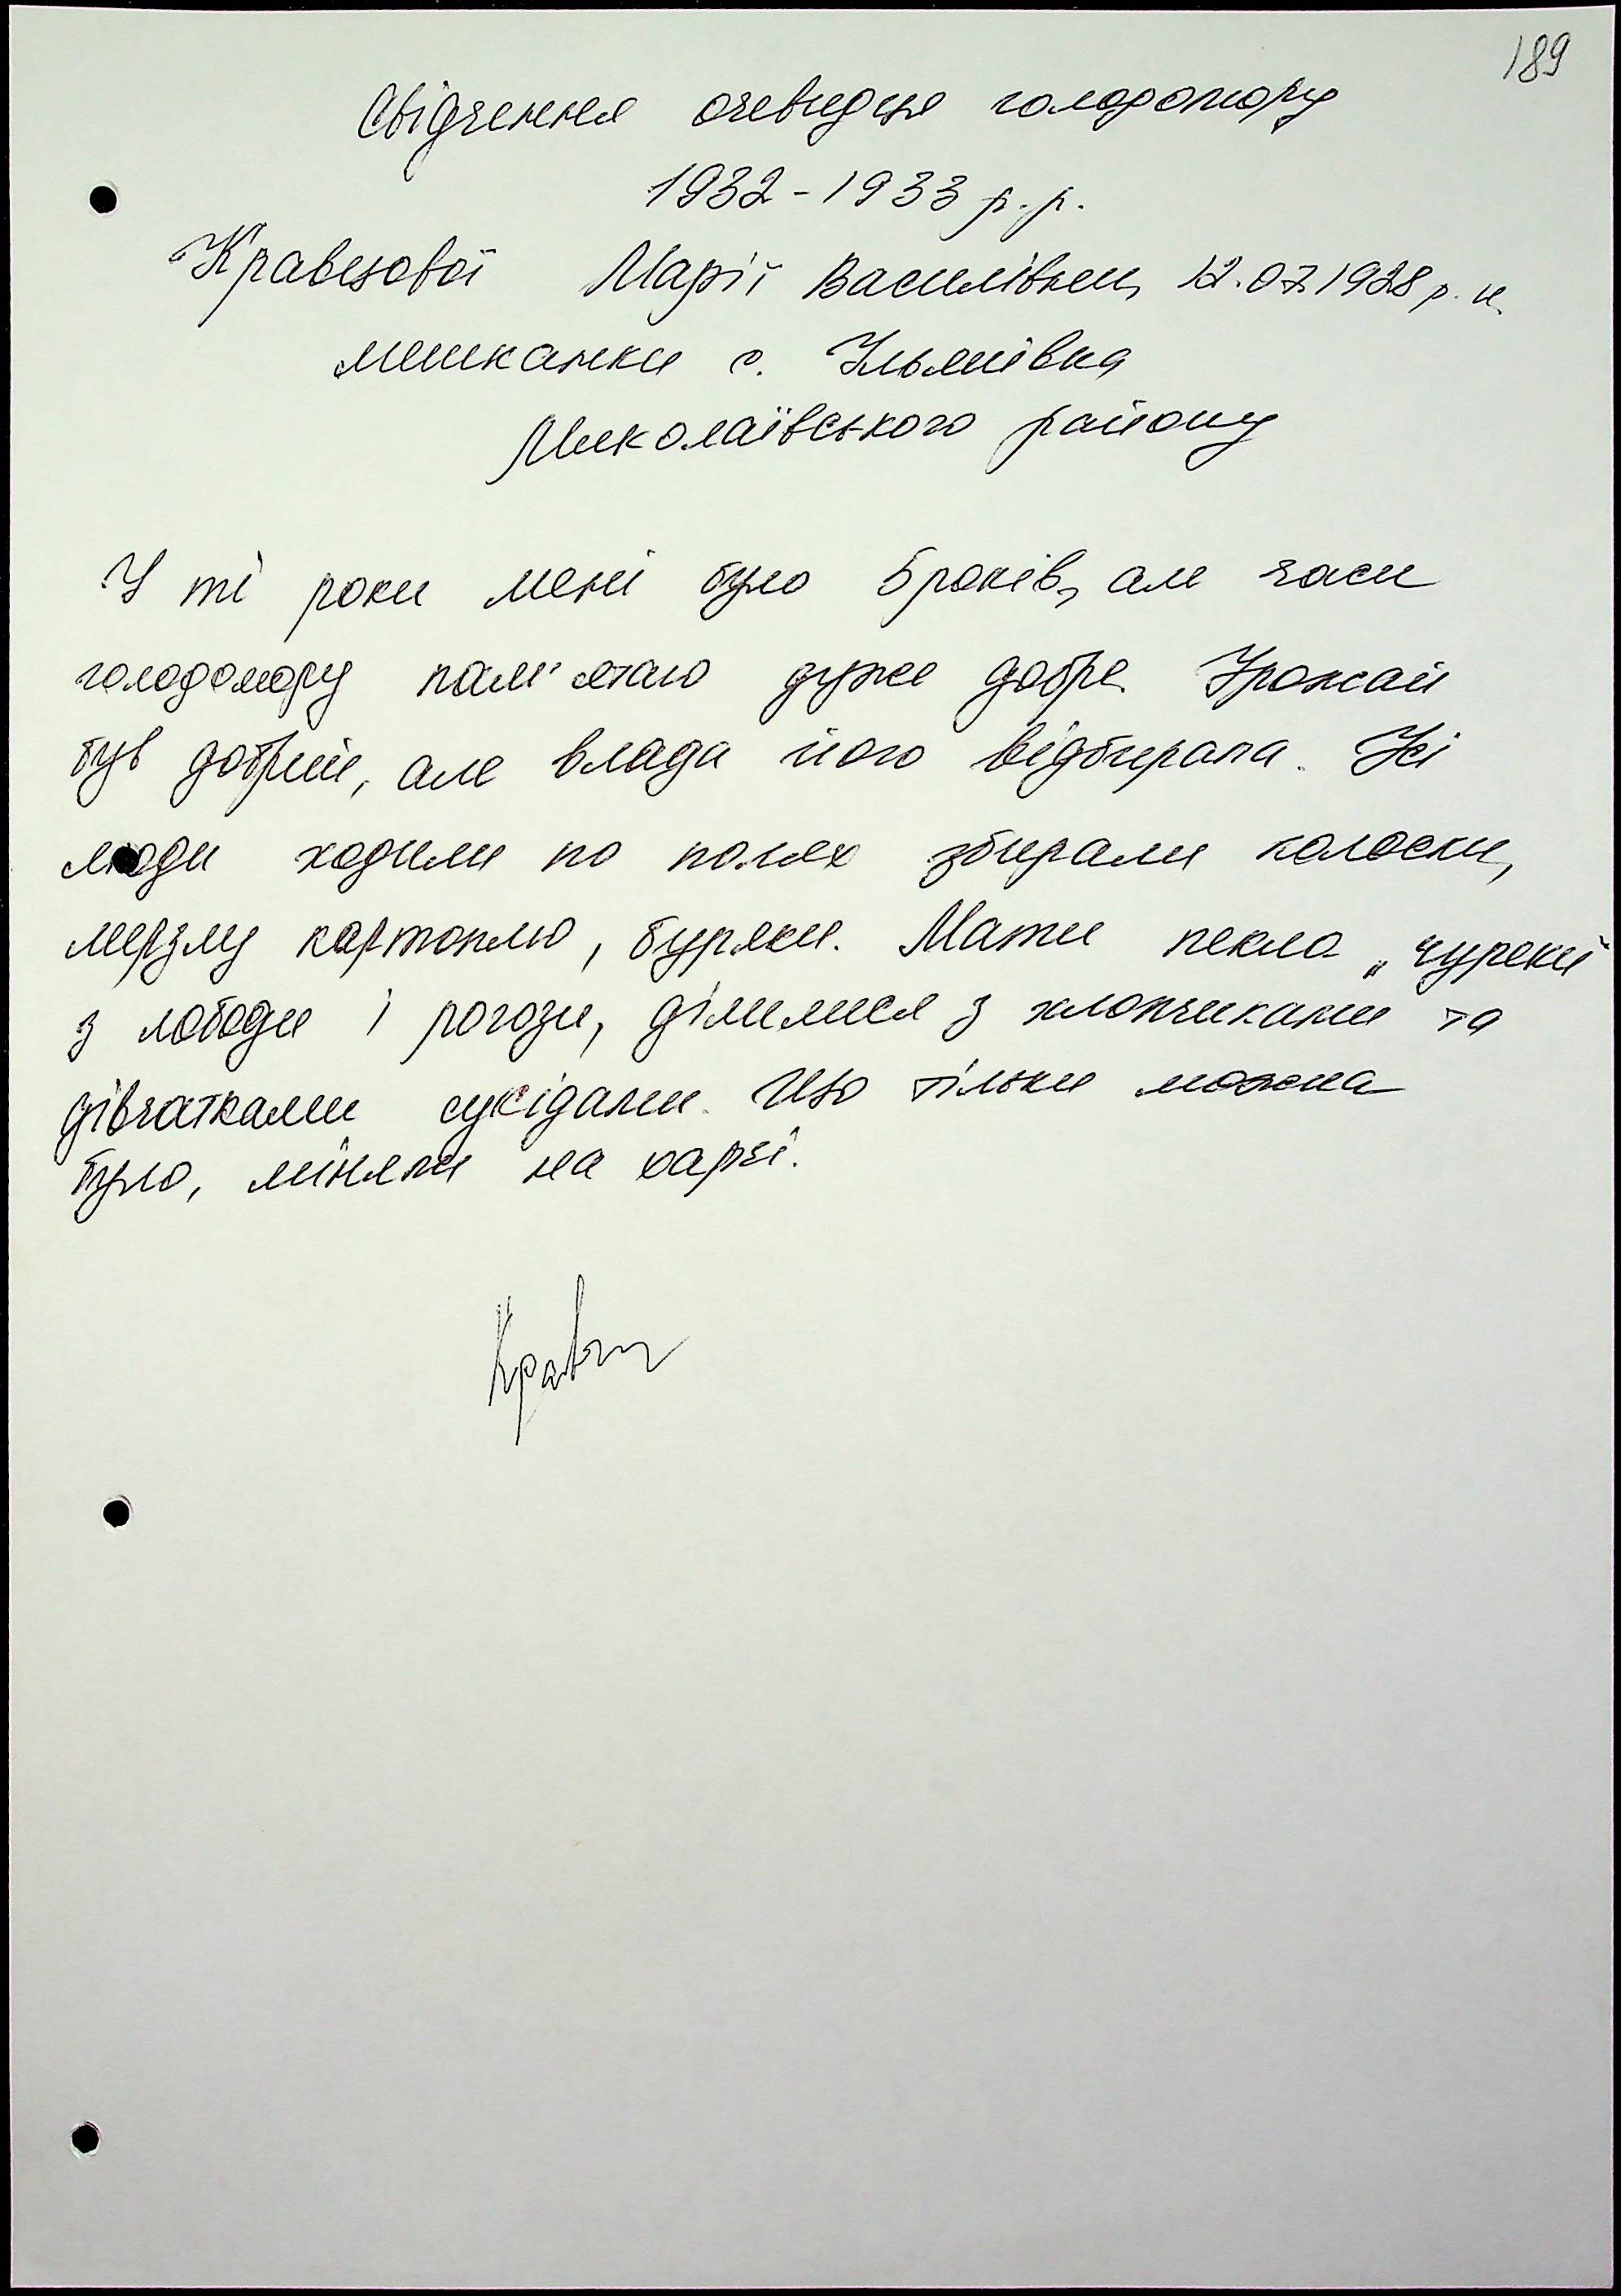 189
Свідчення очевидця голодомору
1932-1933 р.р.
Кравцової Марії Василівни, 12.07.1928 р.н.
мешканки с. Ульянівка
Миколаївського району
У ті роки мені було 5 років, але часи
голодомору пам'ятаю дуже добре. Урожай
був добрий, але влада його відбирала. Усі
люди ходили по полях збирали колоски,
мерзлу картоплю, буряки. Мати пекла „чуреки"
з лободи і рогози, ділилися з хлопчиками та
дівчатками сусідами. Що тільки можна
було, міняли на харчі.